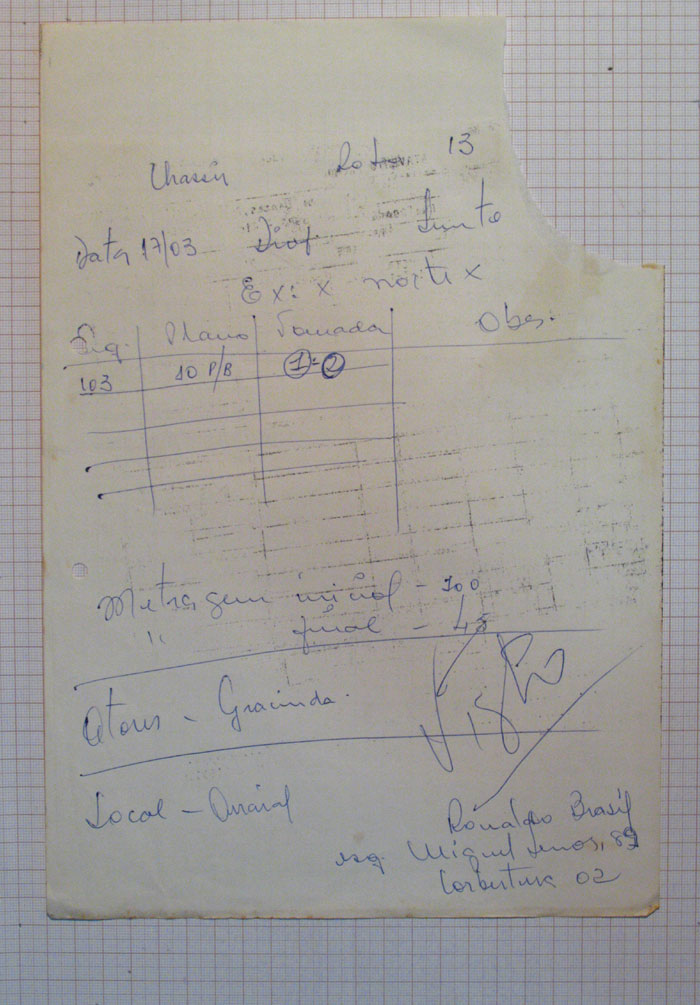 Chassis Rolo 13
Data 17/03
Ex: x noite x
Seq. Plano Tomada Obs.
103 10 P/B 1 = 2
Metragem inicial - 100
" final - 45
Atores - Gracinda.
Local - Arraial
Ronaldo Brasil
Miguel Lemos, 89
Cobertura 02